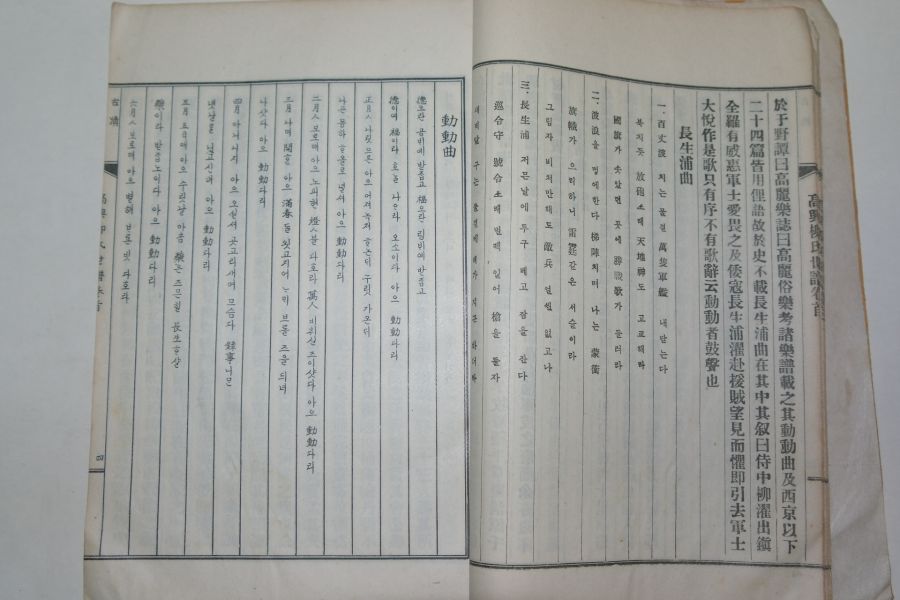 高興柳氏世譜卷首
於于野譚曰高麗樂誌曰高麗俗樂考諸樂譜載之其動動曲及西京以下
二十四篇皆用俚語故於史不載長生浦曲在其中其叙曰侍中柳濯出鎭
全羅有威惠軍士愛畏之及倭寇長生浦濯赴援賊望見而懼即引去軍士
大悅作是歌只有序不有歌辭云動動者鼓聲也
長生浦曲
一. 百丈波 치는 물결 萬隻軍艦 내 닫는다
북치듯 放砲소래 天地神도 고교해라
國旗가 솟났던 곳에 勝戰歌가 들려라
二. 波浪을 멍에한다 梯陣치며 나는 蒙衝
旗幟가 으리하니 雷霆같은 서슬이라
그림자 비최만해도 敵兵 덛셈 없고나
三. 長生浦 저믄날에 투구 베고 잠을 잔다
巡合守 號合소래에 번떽 일어 槍을 들자
動動曲
德으란 곰비예 받줍고 福으란 림비예 받줍고
德이여 福이라 호늘 나으라 오소이다 아으 動動다리
正月ㅅ 나릿므른 아으 어져녹져 하논디 누릿 가온디
나곤 몸하 하올로 녈셔 아으 動動다리
二月ㅅ 보로매 아으 노피현 燈ㅅ블 다호라 萬人 비취실 즈이샷다 아으 動動다리
三月 나며 開한 아으 滿春 돌 욋고지여 느믹 브롤 즈을 듸녀
나샷다 아으 動動다리
四月 아니 니저 아으 오실셔 곳고리새여 므슴다 錄事니믄
녯날을 닛고신뎌 아으 動動다리
五月 五日애 아으 수릿날 아츰 藥은 즈믄힐 長生하샬
藥이라 받줍노이다 아으 動動다리
六月ㅅ 보로매 아으 별해 브룐 빗 다호라
古蹟
四